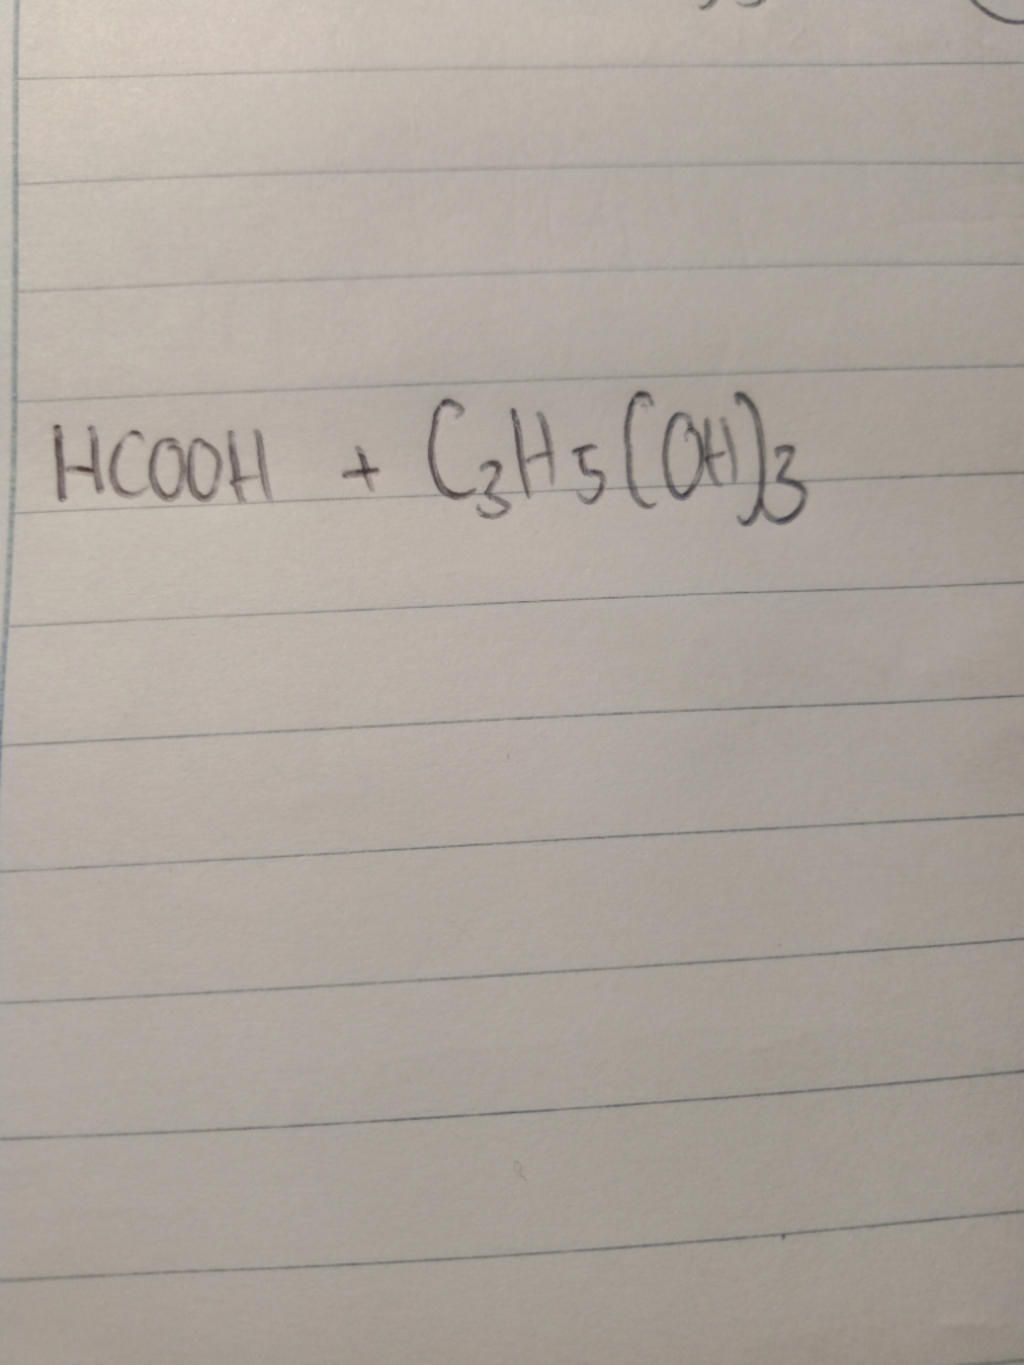 HCOOH + C₃H₅(OH)₃